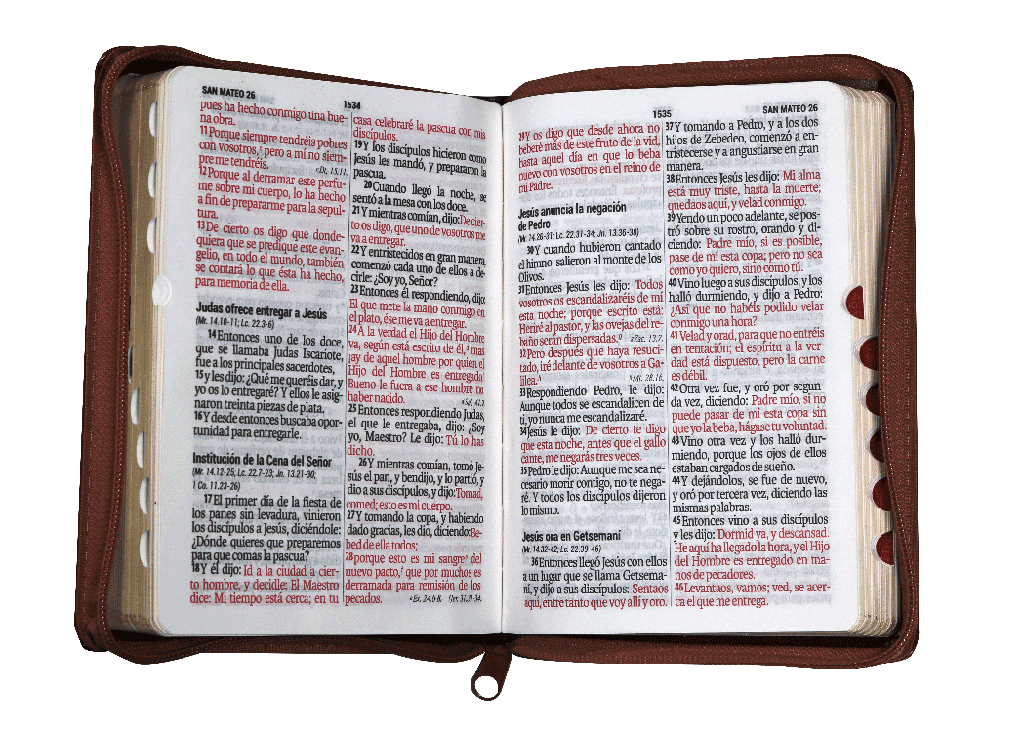 SAN MATEO 26
1534
pues ha hecho conmigo una bue-
na obra.
11 Porque siempre tendréis pobres
con vosotros, pero a mí no siem-
pre me tendréis.
Dt. 15.11.
12 Porque al derramar este perfu-
me sobre mi cuerpo, lo ha hecho
a fin de prepararme para la sepul-
tura.
13 De cierto os digo que donde-
quiera que se predique este evan-
gelio, en todo el mundo, también
se contará lo que ésta ha hecho,
para memoria de ella.
Judas ofrece entregar a Jesús
(Mr. 14.10-11; Lc. 22.3-6)
14 Entonces uno de los doce,
que se llamaba Judas Iscariote,
fue a los principales sacerdotes,
15 y les dijo: ¿Qué me queréis dar, y
yo os lo entregaré? Y ellos le asig-
naron treinta piezas de plata.
16 Y desde entonces buscaba opor-
tunidad para entregarle.
Institución de la Cena del Señor
(Mr. 14.12-25; Lc. 22.7-23; Jn. 13.21-30;
1 Co. 11.21-26)
17 El primer día de la fiesta de
los panes sin levadura, vinieron
los discípulos a Jesús, diciéndole:
¿Dónde quieres que preparemos
para que comas la pascua?
18 Y él dijo: Id a la ciudad a cier-
to hombre, y decidle: El Maestro
dice: Mi tiempo está cerca; en tu
casa celebraré la pascua con mis
discípulos.
19 Y los discípulos hicieron como
Jesús les mandó, y prepararon la
pascua.
20 Cuando llegó la noche, se
sentó a la mesa con los doce.
21 Y mientras comían, dijo: De cier-
to os digo, que uno de vosotros me
va a entregar.
22 Y entristecidos en gran manera,
comenzó cada uno de ellos a de-
cirle: ¿Soy yo, Señor?
23 Entonces él respondiendo, dijo:
El que mete la mano conmigo en
el plato, ése me va a entregar.
24 A la verdad el Hijo del Hombre
va, según está escrito de él, mas
¡ay de aquel hombre por quien el
Hijo del Hombre es entregado!
Bueno le fuera a ese hombre no
haber nacido.
Sal. 41.9.
25 Entonces respondiendo Judas,
el que le entregaba, dijo: ¿Soy
yo, Maestro? Le dijo: Tú lo has
dicho.
26 Y mientras comían, tomó Je-
sús el pan, y bendijo, y lo partió, y
dio a sus discípulos, y dijo: Tomad,
comed; esto es mi cuerpo.
27 Y tomando la copa, y habiendo
dado gracias, les dio, diciendo: Be-
bed de ella todos;
28 porque esto es mi sangre del
nuevo pacto, que por muchos es
derramada para remisión de los
pecados.
Ex. 24.6-8. Jer. 31.31-34.
1535
SAN MATEO 26
29 Y os digo que desde ahora no
beberé más de este fruto de la vid,
hasta aquel día en que lo beba
nuevo con vosotros en el reino de
mi Padre.
Jesús anuncia la negación
de Pedro
(Mr. 14.26-31; Lc. 22.31-34; Jn. 13.36-38)
30 Y cuando hubieron cantado
el himno salieron al monte de los
Olivos.
31 Entonces Jesús les dijo: Todos
vosotros os escandalizaréis de mí
esta noche; porque escrito está:
Heriré al pastor, y las ovejas del re-
baño serán dispersadas.
Zac. 13.7.
32 Pero después que haya resuci-
tado, iré delante de vosotros a Ga-
lilea.
Mt. 28.16.
33 Respondiendo Pedro, le dijo:
Aunque todos se escandalicen de
ti, yo nunca me escandalizaré.
34 Jesús le dijo: De cierto te digo
que esta noche, antes que el gallo
cante, me negarás tres veces.
35 Pedro le dijo: Aunque me sea ne-
cesario morir contigo, no te nega-
ré. Y todos los discípulos dijeron
lo mismo.
Jesús ora en Getsemaní
(Mr. 14.32-42; Lc. 22.39-46)
36 Entonces llegó Jesús con ellos
a un lugar que se llama Getsema-
ní, y dijo a sus discípulos: Sentaos
aquí, entre tanto que voy allí y oro.
37 Y tomando a Pedro, y a los dos
hijos de Zebedeo, comenzó a en-
tristecerse y a angustiarse en gran
manera.
38 Entonces Jesús les dijo: Mi alma
está muy triste, hasta la muerte;
quedaos aquí, y velad conmigo.
39 Yendo un poco adelante, se pos-
tró sobre su rostro, orando y di-
ciendo: Padre mío, si es posible,
pase de mí esta copa; pero no sea
como yo quiero, sino como tú.
40 Vino luego a sus discípulos y los
halló durmiendo, y dijo a Pedro:
¿Así que no habéis podido velar
conmigo una hora?
41 Velad y orad, para que no entréis
en tentación; el espíritu a la ver-
dad está dispuesto, pero la carne
es débil.
42 Otra vez fue, y oró por segun-
da vez, diciendo: Padre mío, si no
puede pasar de mí esta copa sin
que yo la beba, hágase tu voluntad.
43 Vino otra vez y los halló dur-
miendo, porque los ojos de ellos
estaban cargados de sueño.
44 Y dejándolos, se fue de nuevo,
y oró por tercera vez, diciendo las
mismas palabras.
45 Entonces vino a sus discípulos
y les dijo: Dormid ya, y descansad.
He aquí ha llegado la hora, y el Hijo
del Hombre es entregado en ma-
nos de pecadores.
46 Levantaos, vamos; ved, se acer-
ca el que me entrega.